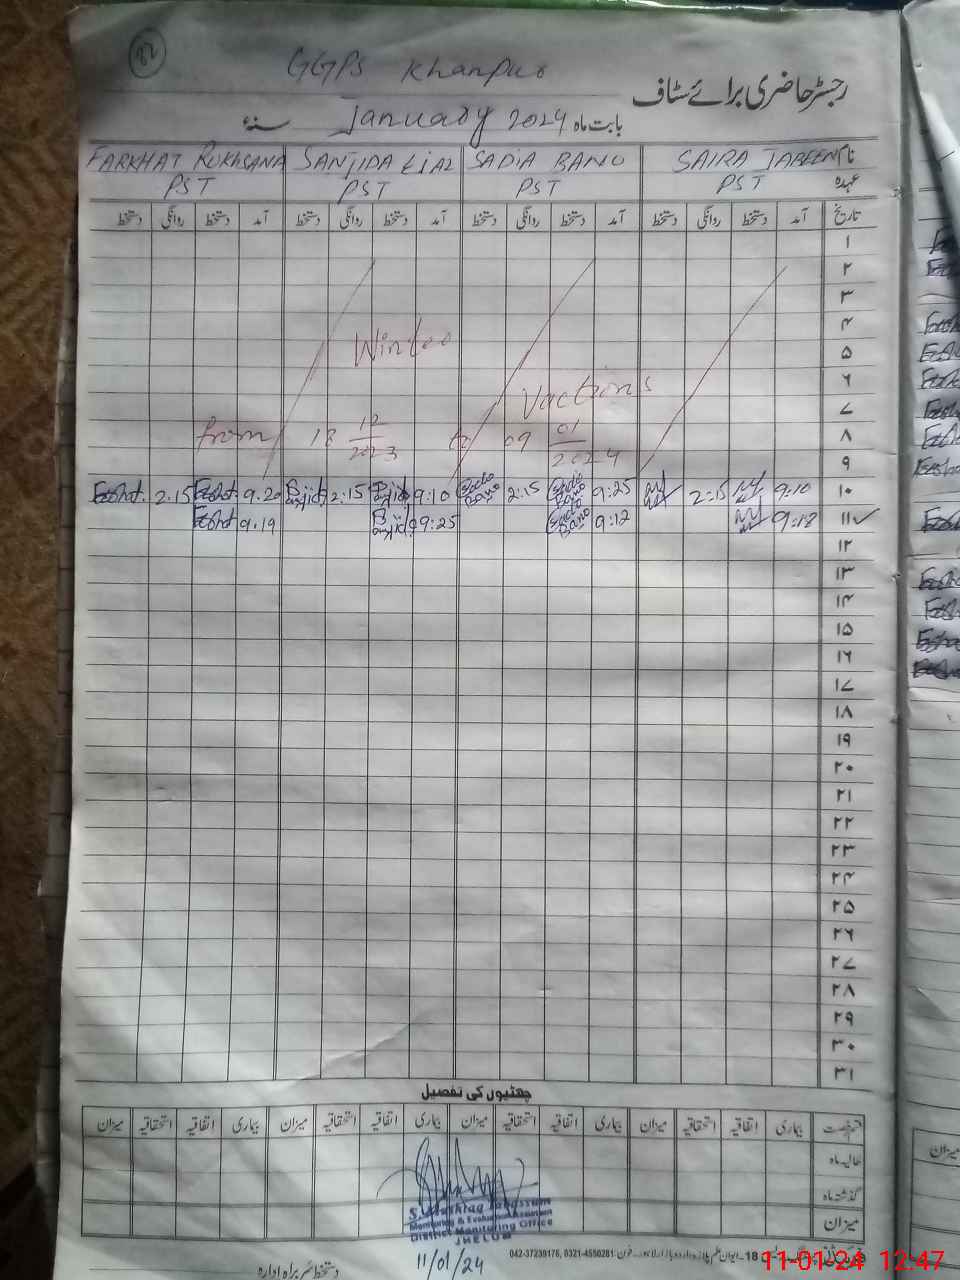 22
GGPS Khanpur
رجسٹر حاضری برائے سٹاف
بابت ماہ January 2024 سنہء
نام SAIRA JABEEN SADIA BANO SANJIDA EJAZ FARKHAT RUKHSANA
عہدہ PST PST PST PST
تاریخ آمد دستخط روانگی دستخط آمد دستخط روانگی دستخط آمد دستخط روانگی دستخط آمد دستخط روانگی دستخط
۱
۲
۳
۴
۵
Winter
۶
Vactions
۷
۸
from 18 12/2023 to 09 01/2024
۹
۱۰ 9:10 2:15 9:25 Sadia Bano 2:15 Sadia Bano 9:10 2:15 9.20 2.15
۱۱ 9:18 9:12 Sadia Bano 09:25 9.19
۱۲
۱۳
۱۴
۱۵
۱۶
۱۷
۱۸
۱۹
۲۰
۲۱
۲۲
۲۳
۲۴
۲۵
۲۶
۲۷
۲۸
۲۹
۳۰
۳۱
چھٹیوں کی تفصیل
قسم رخصت بیماری اتفاقیہ استحقاقیہ میزان بیماری اتفاقیہ استحقاقیہ میزان بیماری اتفاقیہ استحقاقیہ میزان بیماری اتفاقیہ استحقاقیہ میزان
حالیہ ماہ
گذشتہ ماہ
میزان
Monitoring & Evaluation
District Monitoring Office
JHELUM
11/01/24
دستخط سربراہ ادارہ
042-37239176, 0321-4550281
میزان
11-01-24 12:47